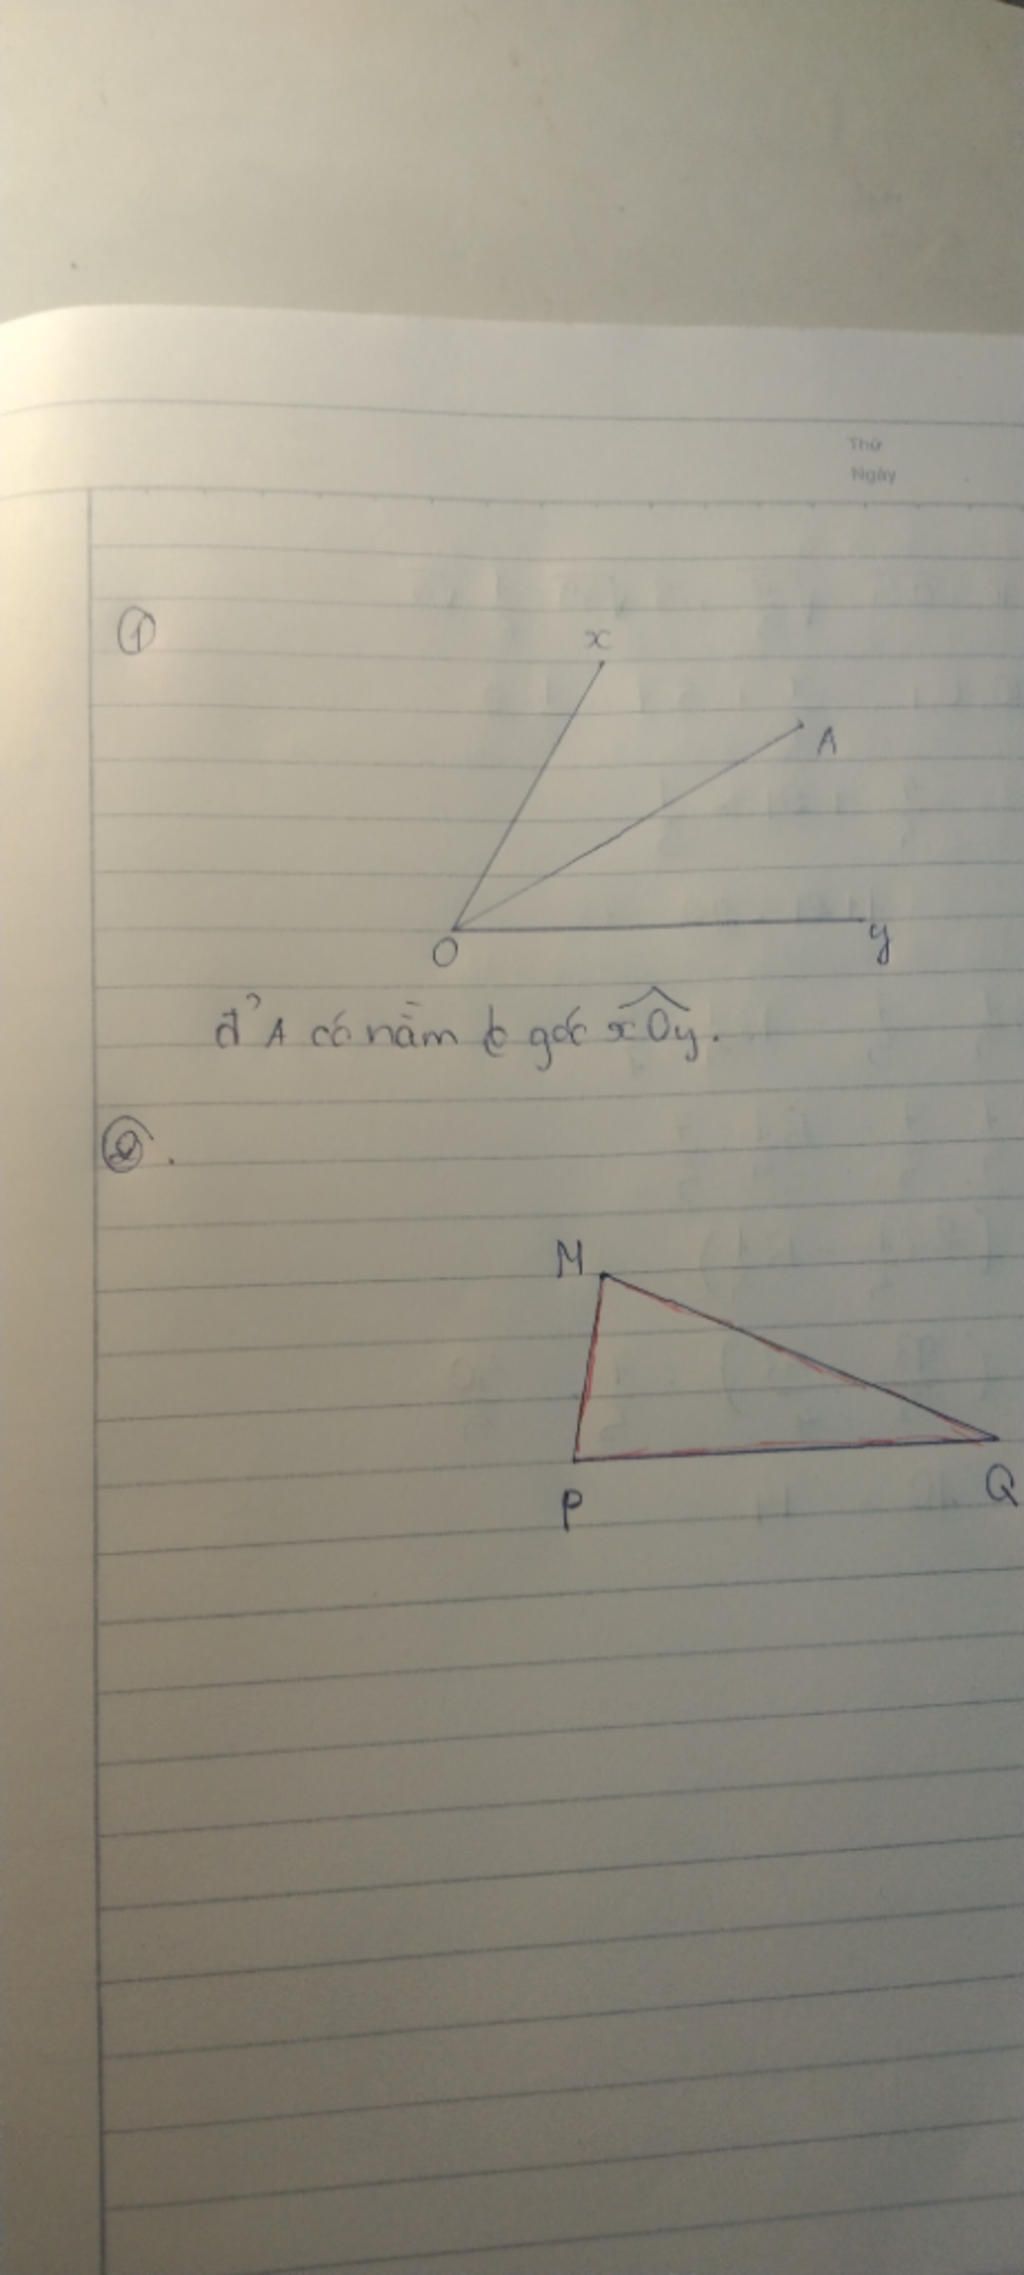 Thứ
Ngày
①
x
A
O
y
đ' A có nằm tr góc xOy.
②.
M
P
Q